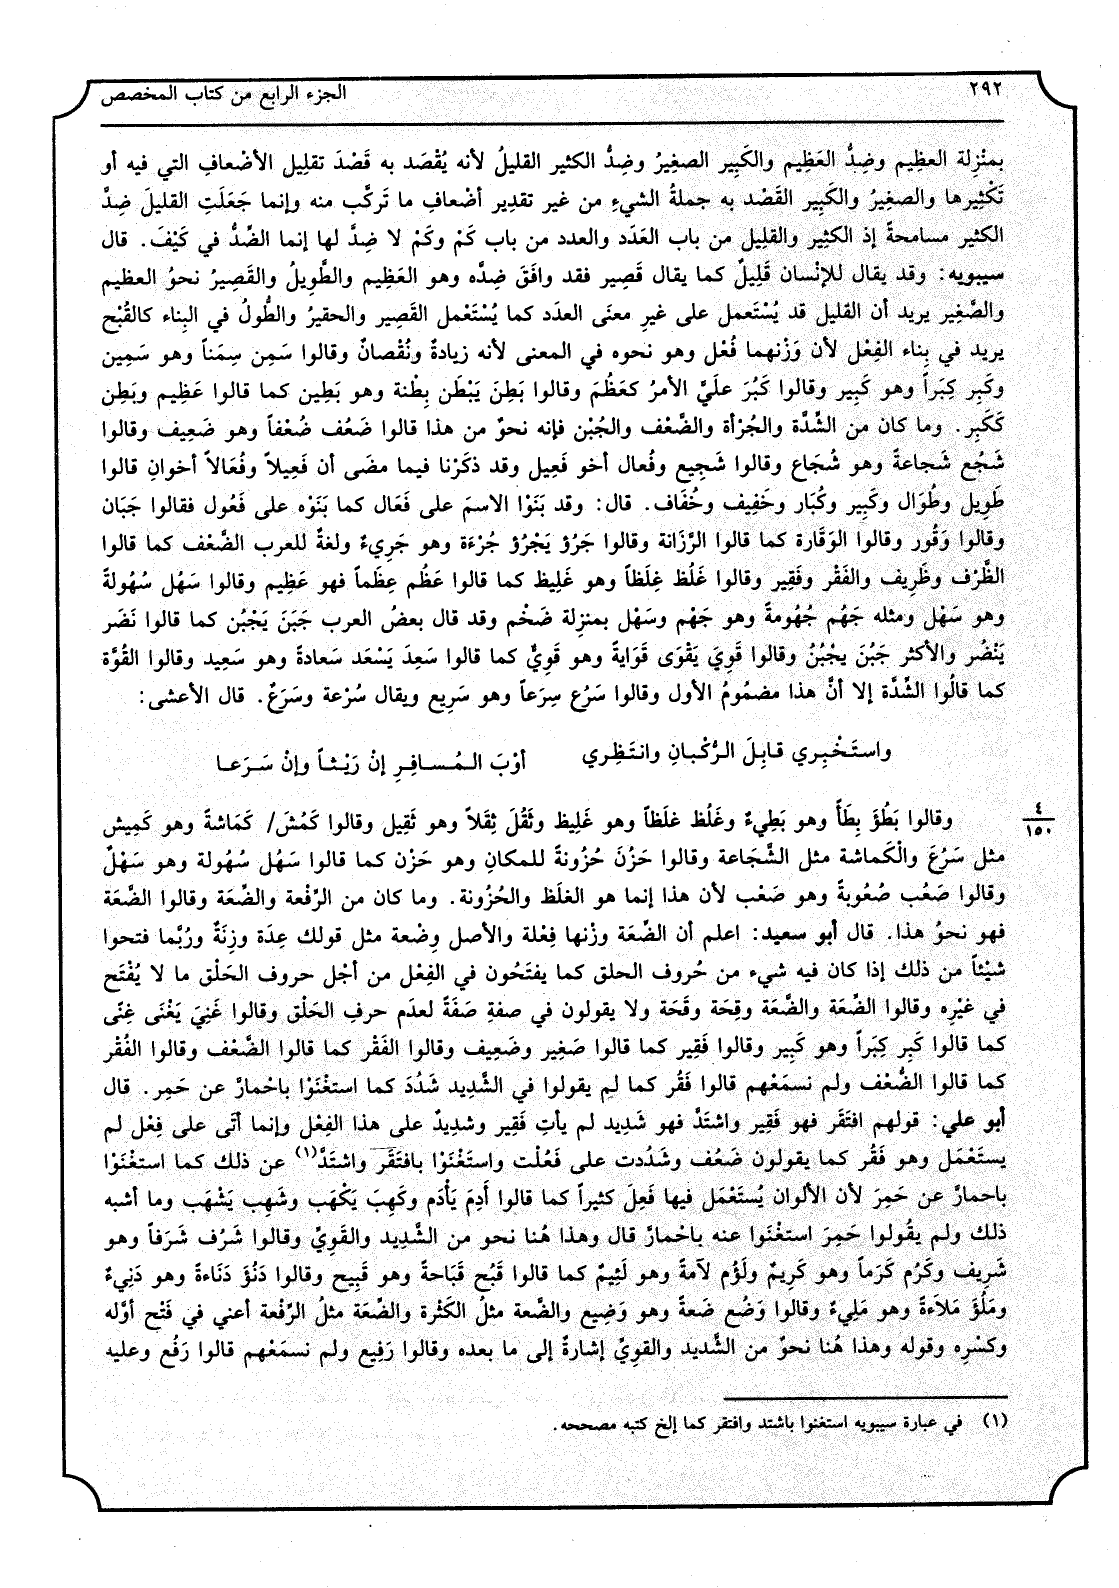 ٢٩٢
الجزء الرابع من كتاب المخصص
بمنْزِلة العظِيم وضِدُّ العَظِيم والكَبِير الصغِيرُ وضِدُّ الكثير القليلُ لأنه يُقْصَد به قَصْدَ تقلِيل الأضْعافِ التي فيه أو
تَكْثِيرها والصغِيرُ والكَبِير القَصْد به جملةُ الشيءِ من غير تقدِير أضْعافِ ما تَركَّب منه وإنما جَعَلَتِ القليلَ ضِدَّ
الكثير مسامحةً إذ الكثِير والقلِيل من باب العَدَد والعدد من باب كَمْ وكَمْ لا ضِدَّ لها إنما الضِّدُّ في كَيْفَ. قال
سيبويه: وقد يقال للإنْسان قَلِيلٌ كما يقال قَصِير فقد وافَقَ ضِدَّه وهو العَظِيم والطَّوِيلُ والقَصِيرُ نحوُ العظيم
والصَّغِير يريد أن القليل قد يُسْتَعمل على غيرِ معنَى العدَد كما يُسْتَعْمل القَصِير والحقيرُ والطُّولُ في البِناء كالقُبْح
يريد في بِناء الفِعْل لأن وَزْنهما فُعْل وهو نحوه في المعنى لأنه زيادةٌ ونُقْصانٌ وقالوا سَمِن سِمَناً وهو سَمِين
وكَبِر كِبَراً وهو كَبِير وقالوا كَبُرَ علَيَّ الأمرُ كعَظُمَ وقالوا بَطِنَ يَبْطَن بِطْنة وهو بَطِين كما قالوا عَظِيم وبَطِن
كَكَبِر. وما كان من الشِّدَّة والجُرْأة والضَّعْف والجُبْن فإنه نحوٌ من هذا قالوا ضَعُف ضُعْفاً وهو ضَعِيف وقالوا
شَجُع شَجاعةً وهو شُجَاع وقالوا شَجِيع وفُعال أخو فَعِيل وقد ذكَرْنا فيما مضَى أن فَعِيلاً وفُعَالاً أخوانِ قالوا
طَوِيل وطُوَال وكَبِير وكُبَار وخَفِيف وخُفَاف. قال: وقد بَنَوْا الاسمَ على فَعَال كما بَنَوْه على فَعُول فقالوا جَبَان
وقالوا وَقُور وقالوا الوَقَارة كما قالوا الرَّزَانة وقالوا جَرُؤ يَجْرُؤ جُرْءَة وهو جَرِيءٌ ولغةٌ للعرب الضَّعْف كما قالوا
الظَّرْف وظَرِيف والفَقْر وفَقِير وقالوا غَلُظ غِلَظاً وهو غَلِيظ كما قالوا عَظُم عِظَماً فهو عَظِيم وقالوا سَهُل سُهُولةً
وهو سَهْل ومثله جَهُم جُهُومةً وهو جَهْم وسَهْل بمنزلة ضَخْم وقد قال بعضُ العرب جَبَنَ يَجْبُن كما قالوا نَضَر
يَنْضُر والأكثر جَبُنَ يجْبُنُ وقالوا قَوِيَ يَقْوَى قَوَايةً وهو قَوِيٌّ كما قالوا سَعِدَ يَسْعَد سَعادةً وهو سَعِيد وقالوا القُوَّة
كما قالُوا الشِّدَّة إلا أنَّ هذا مضمُومُ الأول وقالوا سَرُع سِرَعاً وهو سَرِيع ويقال سُرْعة وسَرَعٌ. قال الأعشى:
واستَخْبِري قابِلَ الرُّكْبانِ وانتَظِري أوْبَ المُسافِرِ إنْ رَيْثاً وإنْ سَرَعا
وقالوا بَطُؤَ بِطَأً وهو بَطِيءٌ وغَلُظ غلَظاً وهو غَلِيظ وثَقُلَ ثِقَلاً وهو ثَقِيل وقالوا كَمُشَ/ كَمَاشةً وهو كَمِيش
٤
١٥٠
مثل سَرُعَ والْكَماشة مثل الشَّجَاعة وقالوا حَزُنَ حُزُونةً للمكانِ وهو حَزْن كما قالوا سَهُل سُهُولة وهو سَهْلٌ
وقالوا صَعُب صُعُوبةً وهو صَعْب لأن هذا إنما هو الغلَظ والحُزُونة. وما كان من الرِّفْعة والضِّعَة وقالوا الضَّعَة
فهو نحوُ هذا. قال أبو سعيد: اعلم أن الضِّعَة وزْنها فِعْلة والأصل وِضْعة مثل قولك عِدَة وزِنَةٌ ورُبَّما فتحوا
شيْئاً من ذلك إذا كان فيه شيء من حُروف الحلق كما يفتَحُون في الفِعْل من أجْل حروف الحَلْق ما لا يُفْتَح
في غيْرِه وقالوا الضِّعَة والضَّعَة وقِحَة وقَحَة ولا يقولون في صفةِ صَفَةً لعدَم حرفِ الحَلْق وقالوا غَنِيَ يَغْنَى غِنًى
كما قالوا كَبِر كِبَراً وهو كَبِير وقالوا فَقِير كما قالوا صَغِير وضَعِيف وقالوا الفَقْر كما قالوا الضَّعْف وقالوا الفُقْر
كما قالوا الضُّعْف ولم نسمَعْهم قالوا فَقُر كما لم يقولوا في الشَّدِيد شَدُدَ كما استغْنَوْا باحْمارَّ عن حَمِر. قال
أبو علي: قولهم افتَقَر فهو فَقِير واشتَدَّ فهو شَدِيد لم يأتِ فَقِير وشدِيدٌ على هذا الفِعْل وإنما أتَى على فِعْل لم
يستَعْمَل وهو فَقُر كما يقولون ضَعُف وشَدُدت على فَعُلْت واستَغْنَوْا بافتَقَر واشتَدَّ(١) عن ذلك كما استغْنَوْا
باحمارَّ عن حَمِرَ لأن الألوان يُستَعْمَل فيها فَعِلَ كثيراً كما قالوا أدِمَ يَأْدَم وكَهِبَ يَكْهَب وشَهِب يَشْهَب وما أشبه
ذلك ولم يقُولوا حَمِرَ استغْنَوا عنه باحْمارَّ قال وهذا هُنا نحو من الشَّدِيد والقَوِيِّ وقالوا شَرُف شَرَفاً وهو
شَرِيف وكَرُم كَرَماً وهو كَرِيمٌ ولَؤُم لآمةً وهو لَئِيمٌ كما قالوا قَبُح قَبَاحةً وهو قَبِيح وقالوا دَنُؤ دَنَاءةً وهو دَنِيءٌ
ومَلُؤَ مَلاَءةً وهو مَلِيءٌ وقالوا وَضُع ضَعةً وهو وَضِيع والضَّعة مثلُ الكَثْرة والضِّعَة مثلُ الرِّفْعة أعني في فَتْح أوَّله
وكسْرِه وقوله وهذا هُنا نحوٌ من الشَّديد والقوِيِّ إشارةً إلى ما بعده وقالوا رَفِيع ولم نسمَعْهم قالوا رَفُع وعليه
(١) في عبارة سيبويه استغنوا باشتد وافتقر كما إلخ كتبه مصححه.